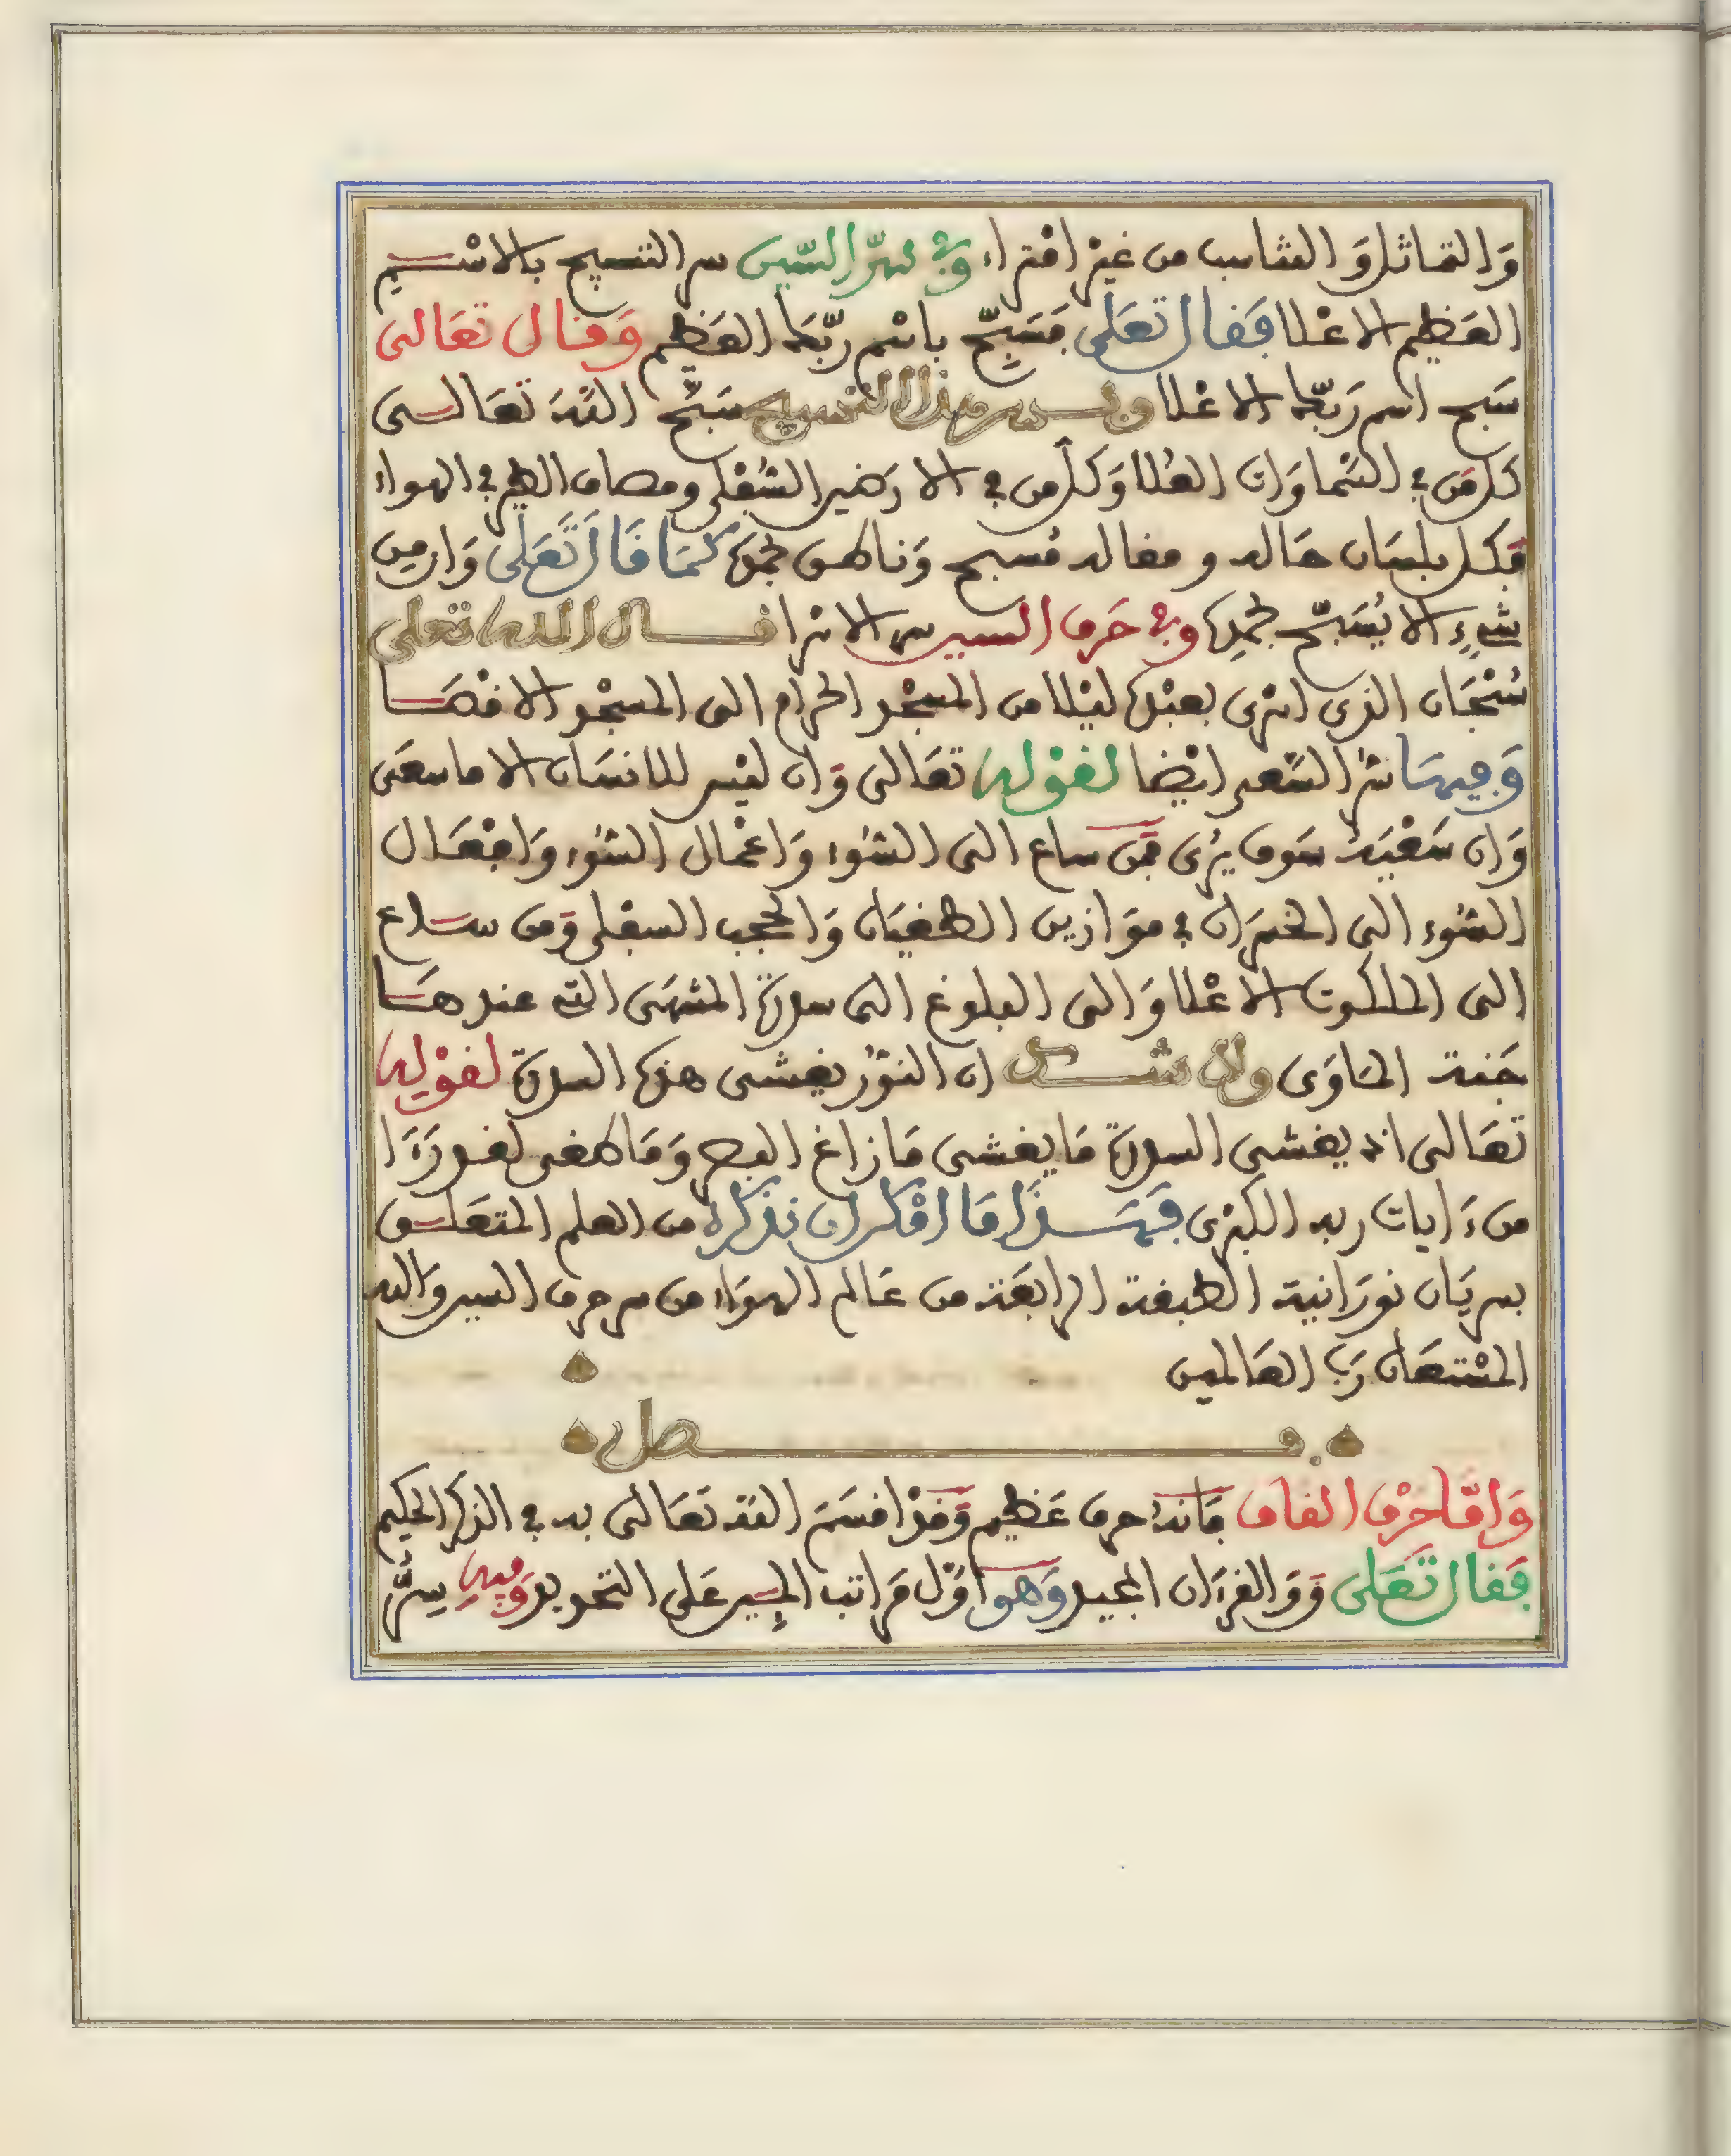 وَالتماثل وَالتناسب من غيْر افتراء وفي سِرّ السّين سر التسبيح بالاسْم
العَظيم الاعْلا فَقال تعَلى فَسَبِّحْ باسْم ربّكَ العَظيم وَقال تعَالى
سَبح اسم رَبّك الاعْلا وبسر هذا التسبيح سَبّحَ اللهَ تعَالى
كل مَن في السّماوَات العُلا وَكل من في الارَضين السُّفْلى ومصاف الطير في الهواء
فكل بلسَان حَاله ومقاله مُسبح وَناطق بحمده كمَا قَالَ تَعَلى وَان من
شيْءٍ الا يُسَبّح بحمدِه وفي حَرف السين سر الاسرا قال الله تعلى
سُبْحَان الذي اسْرى بعبْده ليْلا من المسْجد الحرام الى المسْجد الاقْصَا
وَفيهَا سرّ السّعي ايْضا لقوْله تعَالى وَان ليْس للانسَان الا ما سعَى
وَان سَعْيَهُ سَوف يرُى فمَن ساع الى السُّوء وَاعْمال السُّوء وَافْعَال
السُّوء الى الخسْرَان في موَازين الطغيَان وَالحجب السفلى وَمن ساع
الى الملكوت الاعْلا وَالى البلوغ الى سدرة المنتهَى التي عندهَا
جَنة المَاوَى ولا شك ان النوُّر يغشى هذه السدرة لقوْله
تعَالى اذ يغشى السدرة مَا يغشى مَا زاغ البصر وَمَا طغى لقد رَءَا
من ءَايات ربه الكبْرى فهَذَا مَا امْكن ان نذكره من العلم المتعَلق
بسريَان نورَانية الطبقة الرابعَة من عَالم الهوَاء من سر حرف السين وَالله
المسْتعَان رَبّ العَالمين
فصل
وَامَّا حَرْف القاف فَانهُ حرف عَظيم وَقدْ اقسَمَ اللهُ تعَالى به في الذكر الحكيم
فَقال تَعَلى قَ وَالقرءَان المجيد وَهوَ اوّل مَرَاتب السير عَلى التحويد وَفيه سِرُّ